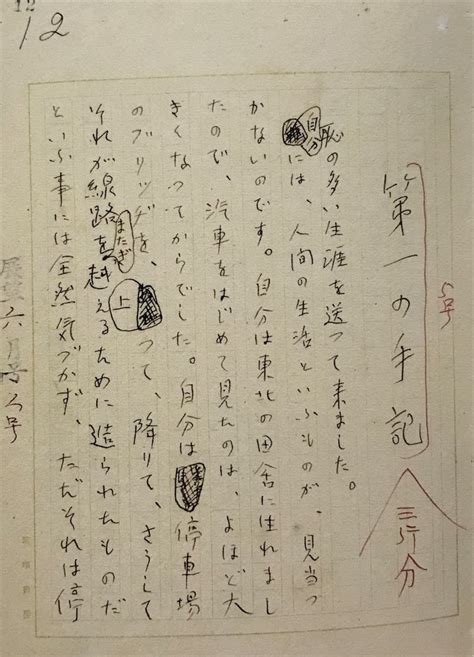 12
12
第一の手記
5号
三行分
恥の多い生涯を送つて来ました。
自分には、人間の生活といふものが、見当つ
かないのです。自分は東北の田舎に生れまし
たので、汽車をはじめて見たのは、よほど大
きくなつてからでした。自分は停車場
のブリッヂを、上つて、降りて、さうして
それが線路をまたぎ越えるために造られたものだ
といふ事には全然気づかず、ただそれは停
展望六月号